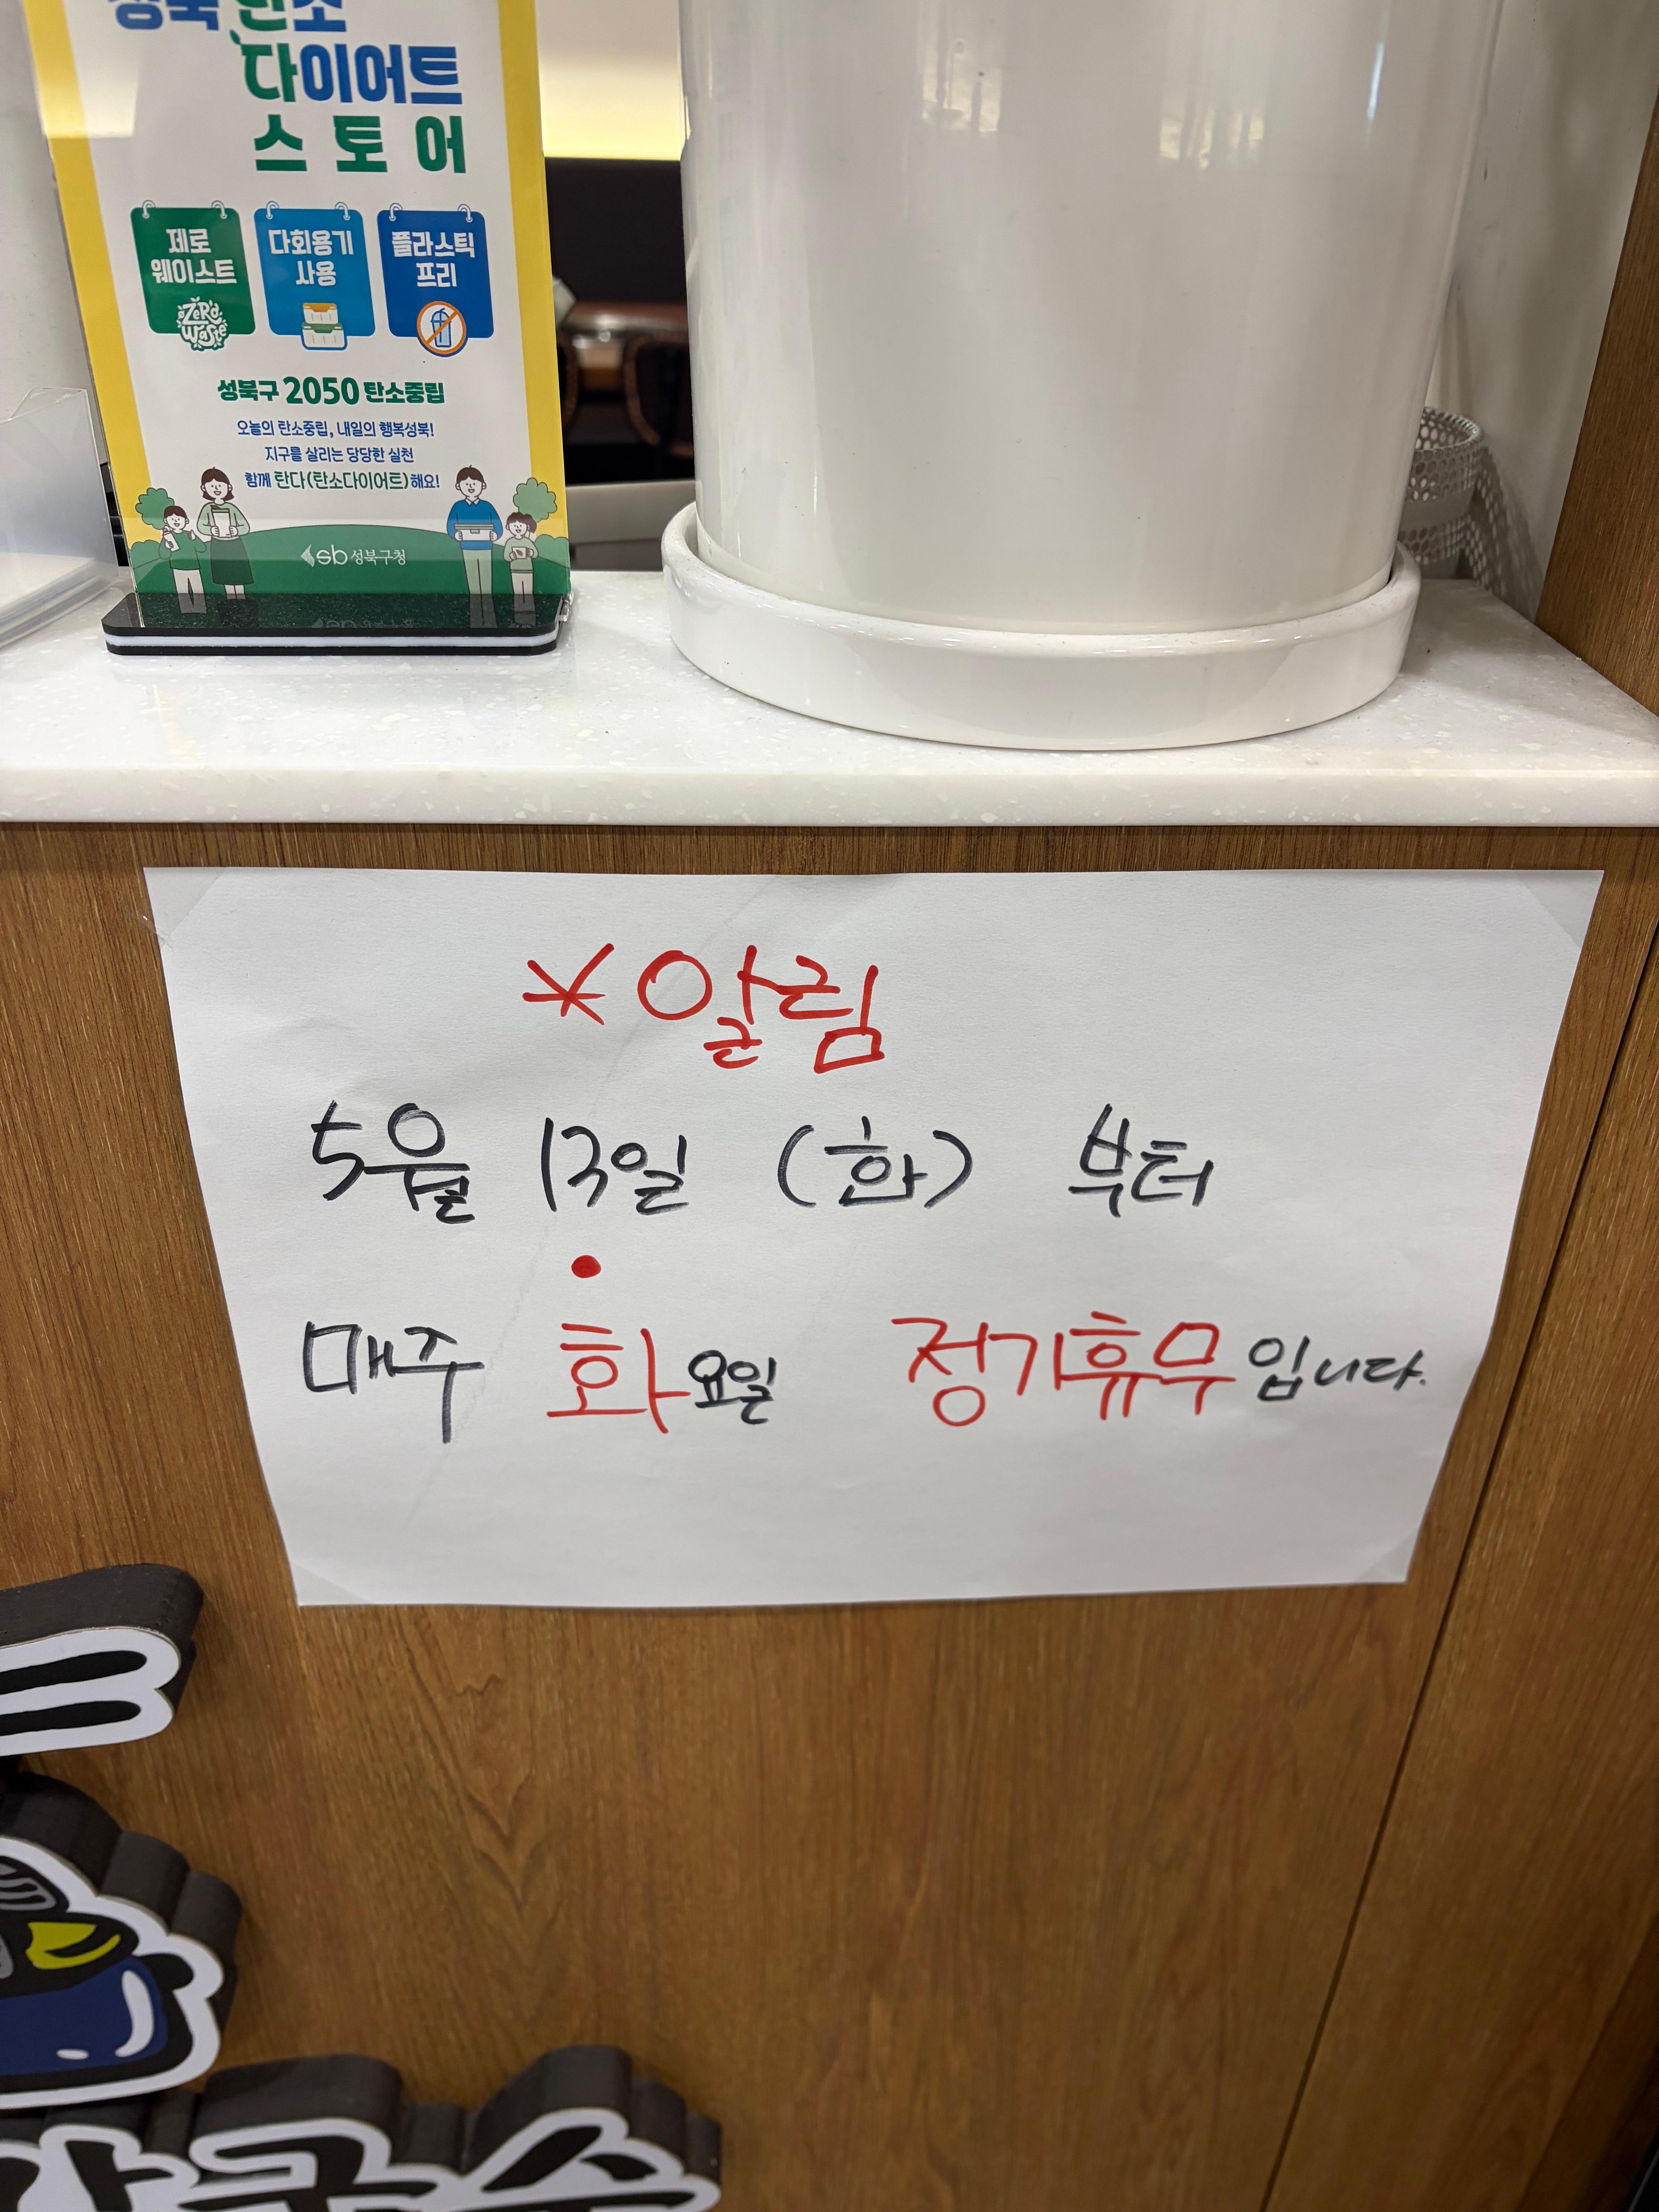 성북 탄소
다이어트
스토어
제로
웨이스트
ZERO
WASTE
다회용기
사용
플라스틱
프리
성북구 2050 탄소중립
오늘의 탄소중립, 내일의 행복성북!
지구를 살리는 당당한 실천
함께 탄다(탄소다이어트)해요!
sb 성북구청
*알림
5월 13일 (화) 부터
매주 화요일 정기휴무입니다.